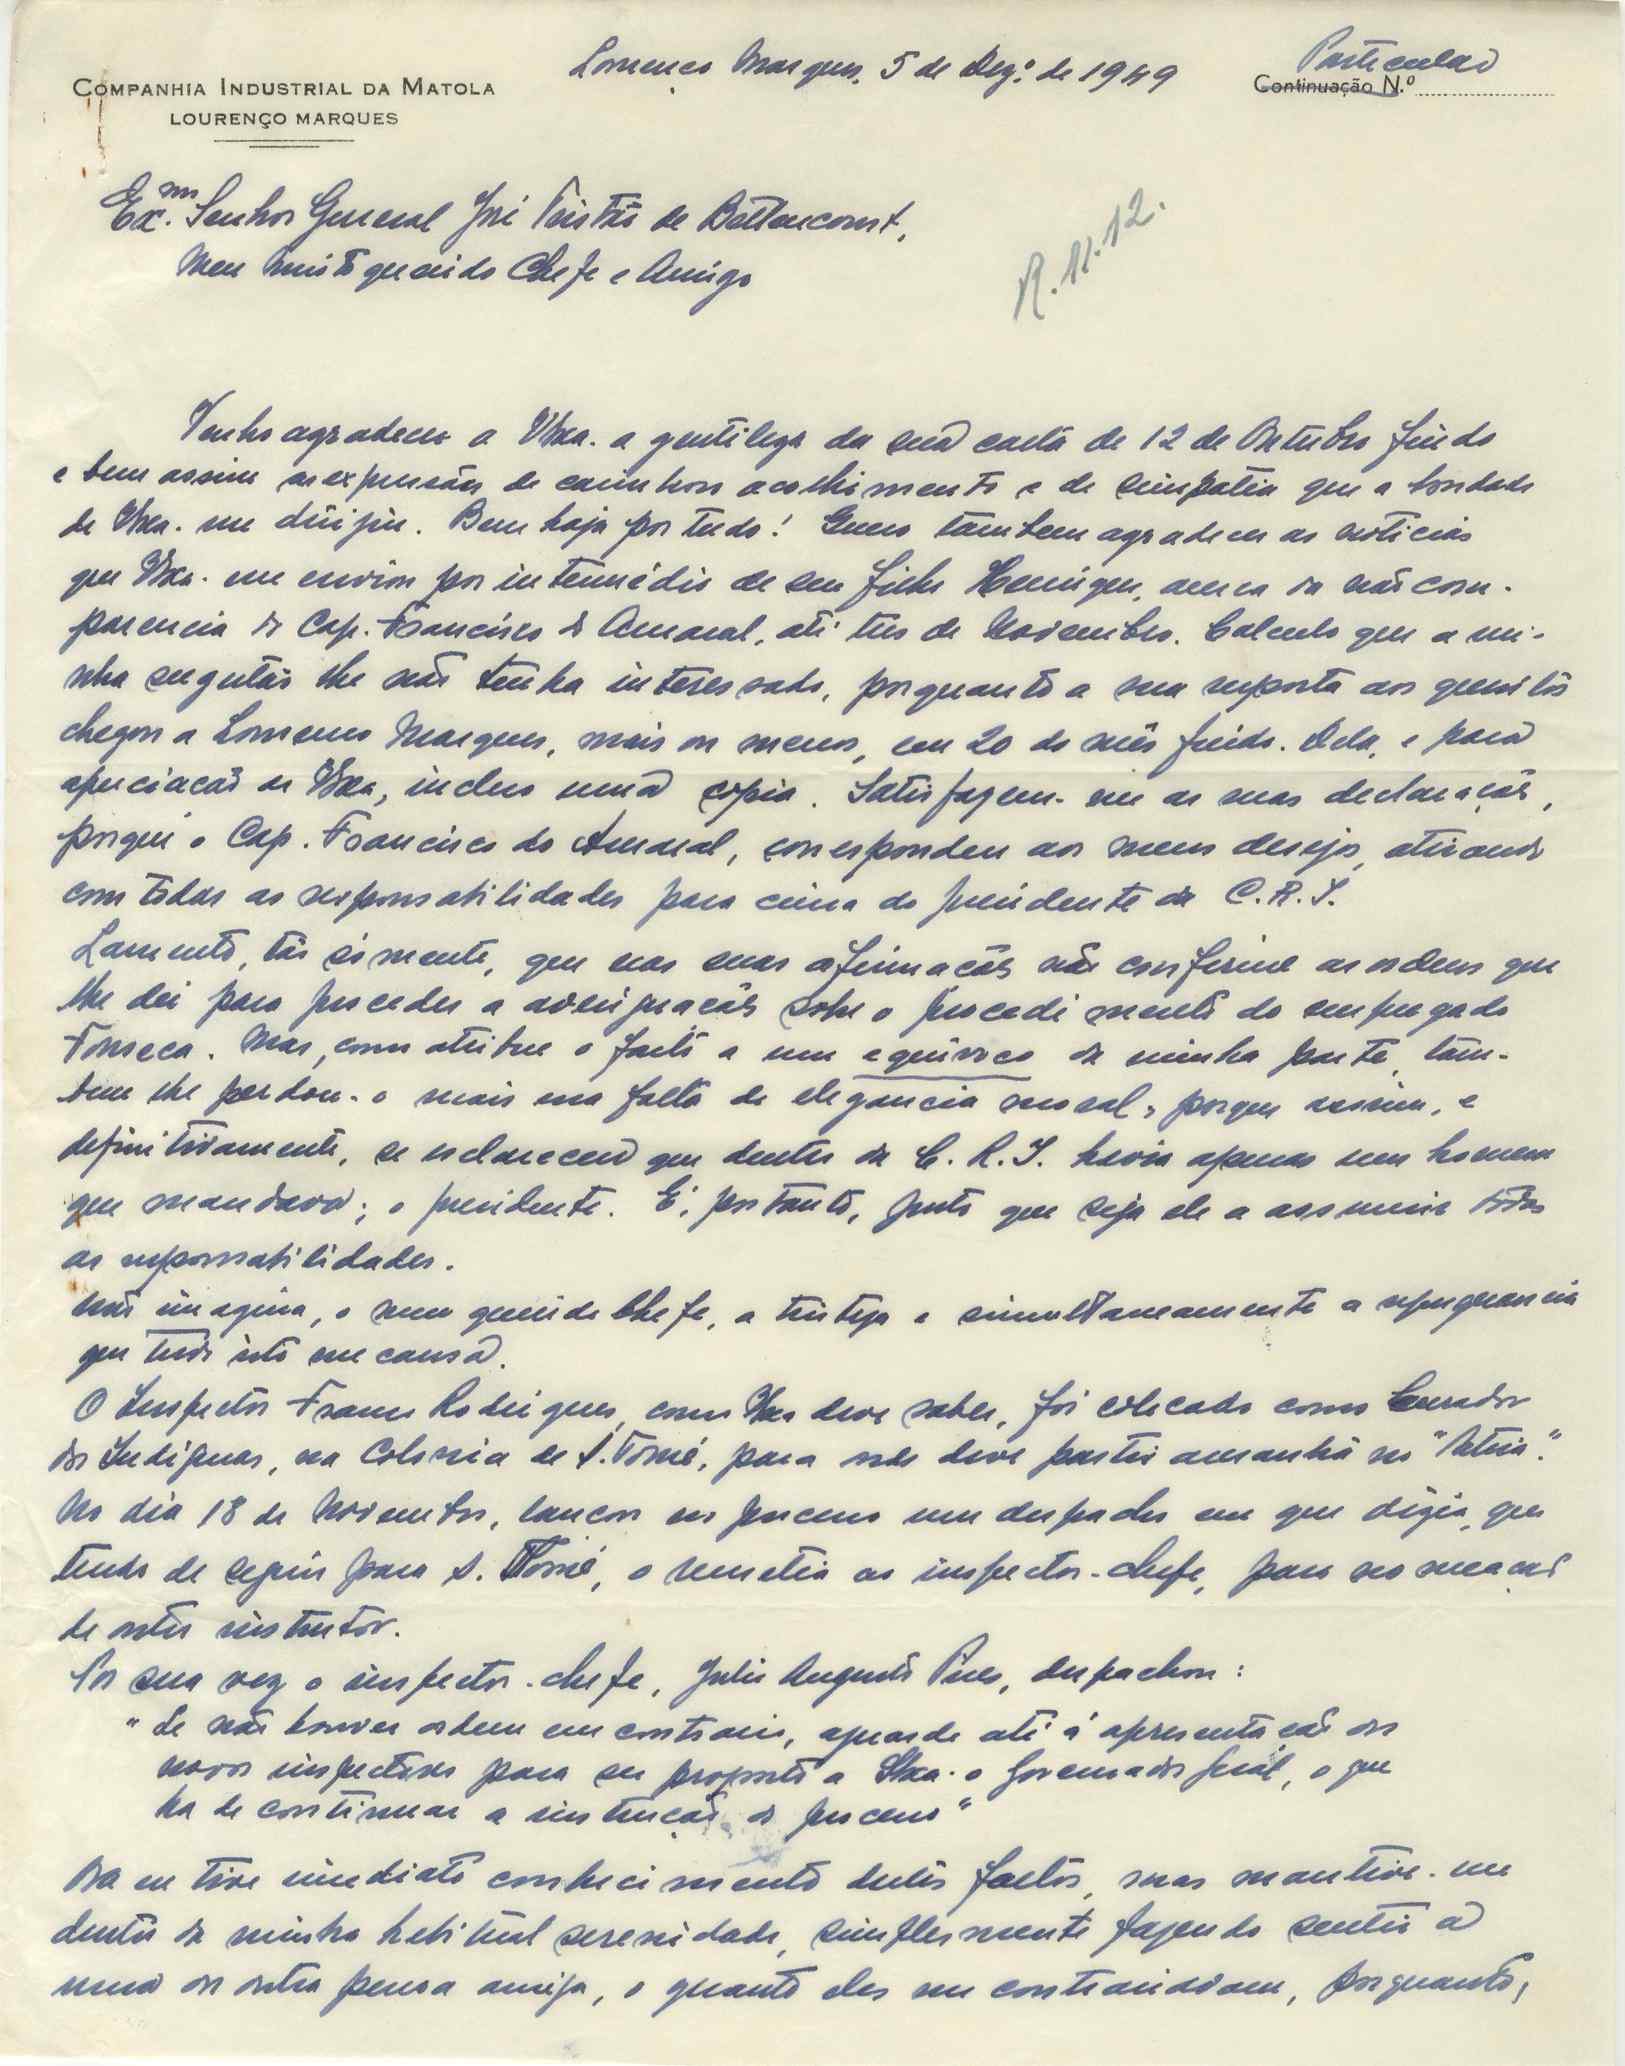 Particular
Lourenço Marques, 5 de Dez.º de 1949
COMPANHIA INDUSTRIAL DA MATOLA
LOURENÇO MARQUES
Continuação N.º
Ex.mo Senhor General José Tristão de Bettencourt,
Meu muito querido Chefe e Amigo
R. 11.12.
Venho agradecer a V.Exa. a gentileza da sua carta de 12 de Outubro findo
e bem assim as expressões de carinhoso acolhimento e de simpatia que a bondade
de V.Exa. me dirigiu. Bem haja por tudo! Quero tambem agradecer as noticias
que V.Exa. me enviou por intermédio de seu filho Henrique, acerca da não com-
parencia do Cap. Francisco do Amaral, até tres de Novembro. Calculo que a mi-
nha sugestão lhe não tenha interessado, porquanto a sua resposta aos quesitos
chegou a Lourenço Marques, mais ou menos, em 20 do mês findo. Dela, e para
apreciação de V.Exa, incluo uma copia. Satisfazem-me as suas declarações,
porque o Cap. Francisco do Amaral, correspondeu aos meus desejos, atirando
com todas as responsabilidades para cima do presidente da C.R.I.
Lamento, tão sómente, que nas suas afirmações não confirme as ordens que
lhe dei para proceder a averiguações sobre o procedimento do empregado
Fonseca. Mas, como atribue o facto a um equivoco da minha parte, tam-
bem lhe perdou-o mais essa falta de elegancia moral, porque assim, e
definitivamente, se esclareceu que dentro da C.R.I. havia apenas um homem
que mandava; o presidente. É, portanto, justo que seja ele a assumir todas
as responsabilidades.
Não imagina, o meu querido Chefe, a tristeza e simultaneamente a repugnancia
que tudo isto me causa.
O Inspector Franco Rodrigues, como V.Exa deve saber, foi colocado como Curador
dos Indigenas, na Colonia de S. Tomé, para onde deve partir amanhã no "Pátria".
No dia 18 de Novembro, lançou no processo um despacho em que dizia, que
tendo de seguir para S. Tomé, o remetia ao inspector-chefe, para nomeação
de outro instrutor.
Por sua vez o inspector-chefe, Julio Augusto Pires, despachou:
"Se não houver ordem em contrario, aguarde até á apresentação dos
novos inspectores para ser proposto a S.Exa. o Governador Geral, o que
ha de continuar a instrução do processo"
Ora eu tive imediato conhecimento destes factos, mas mantive-me
dentro da minha habitual serenidade, simplesmente fazendo sentir a
uma ou outra pessoa amiga, o quanto eles me contrariavam, porquanto,